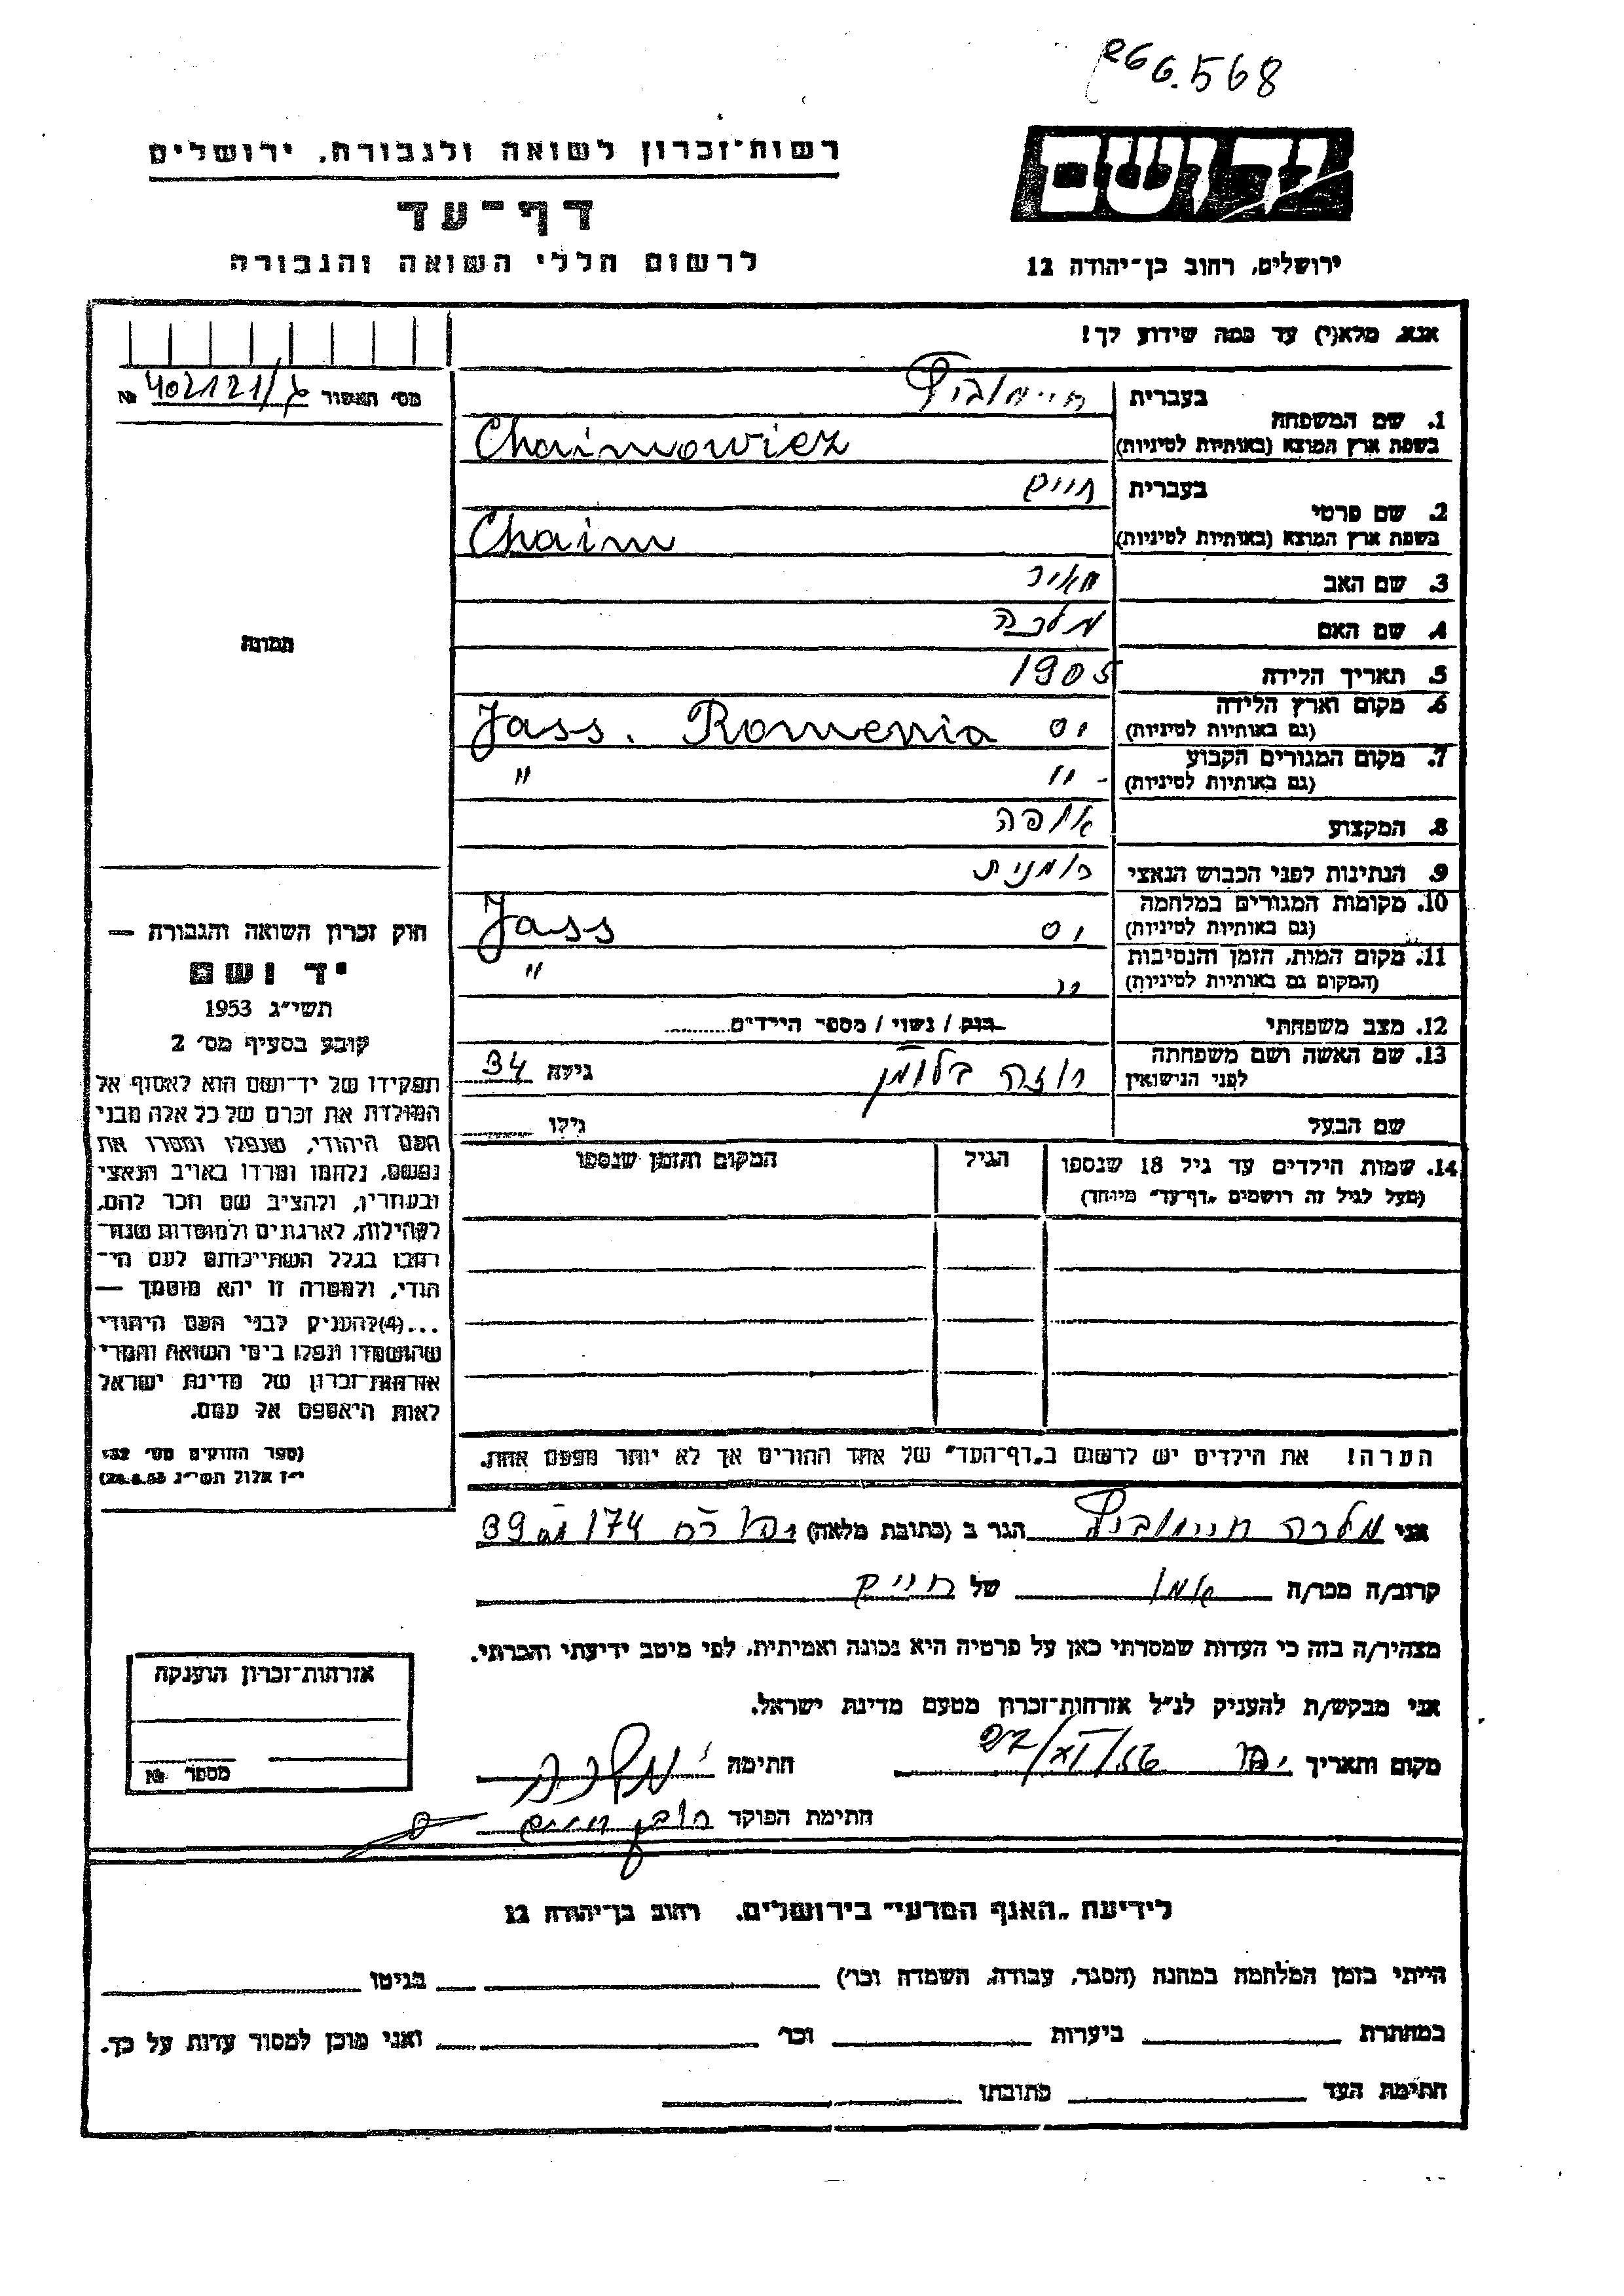 6.568
רשות־זכרון לשואה ולגבורה, ירושלים
דף־עד
לרשום חללי השואה והגבורה
יד ושם
ירושלים, רחוב בן־יהודה 12
אנא, מלא(י) עד כמה שידוע לך!
מס׳ תאשור № 402121/
1. שם המשפחה בעברית חיימוביץ
בשפת ארץ המוצא (באותיות לטיניות) Chaimowicz
2. שם פרטי בעברית חיים
בשפת ארץ המוצא (באותיות לטיניות) Chaim
3. שם האב מאיר
4. שם האם מלכה
5. תאריך הלידה 1905
6. מקום וארץ הלידה (גם באותיות לטיניות) יס Jass. Romenia
7. מקום המגורים הקבוע (גם באותיות לטיניות) -"- "
8. המקצוע אופה
9. הנתינות לפני הכבוש הנאצי רומנית
10. מקומות המגורים במלחמה (גם באותיות לטיניות) יס Jass
11. מקום המות, הזמן והנסיבות (המקום גם באותיות לטיניות) " "
12. מצב משפחתי רווק / נשוי / מספר הילדים
13. שם האשה ושם משפחתה לפני הנישואין רוזה בלומן גילה 34
שם הבעל גילו
14. שמות הילדים עד גיל 18 שנספו (מעל לגיל זה רושמים „דף־עד״ מיוחד) הגיל המקום והזמן שנספו
הערה! את הילדים יש לרשום ב„דף־העד״ של אחד ההורים אך לא יותר מפעם אחת.
תמונה
חוק זכרון השואה והגבורה —
יד ושם
תשי״ג 1953
קובע בסעיף מס׳ 2
תפקידו של יד־ושם הוא לאסוף אל
המולדת את זכרם של כל אלה מבני
העם היהודי, שנפלו ומסרו את
נפשם, נלחמו ומרדו באויב הנאצי
ובעוזריו, ולהציב שם וזכר להם,
לקהילות, לארגונים ולמוסדות שנח־
רבו בגלל השתייכותם לעם הי־
הודי, ולמטרה זו יהא מוסמך —
...(4)להעניק לבני העם היהודי
שהושמדו ונפלו בימי השואה והמרי
אזרחות־זכרון של מדינת ישראל
לאות היאספם אל עמם.
(ספר החוקים מס׳ 132
י״ז אלול תשי״ג 28.8.53)
אני מלכה חיימוביץ הגר ב (כתובת מלאה) יפו 174 39
קרוב/ה מכר/ה אמו של חיים
מצהיר/ה בזה כי העדות שמסרתי כאן על פרטיה היא נכונה ואמיתית, לפי מיטב ידיעתי והכרתי.
אני מבקש/ת להעניק לנ״ל אזרחות־זכרון מטעם מדינת ישראל.
מקום ותאריך יפו 27/XI/56 חתימה מלכה
חתימת הפוקד חיים
אזרחות־זכרון הוענקה
מספר №
לידיעת „האגף המדעי״ בירושלים. רחוב בן־יהודה 12
הייתי בזמן המלחמה במחנה (הסגר, עבודה, השמדה וכו׳) בגיטו
במחתרת ביערות וכו׳ ואני מוכן למסור עדות על כך.
חתימת העד כתובתו